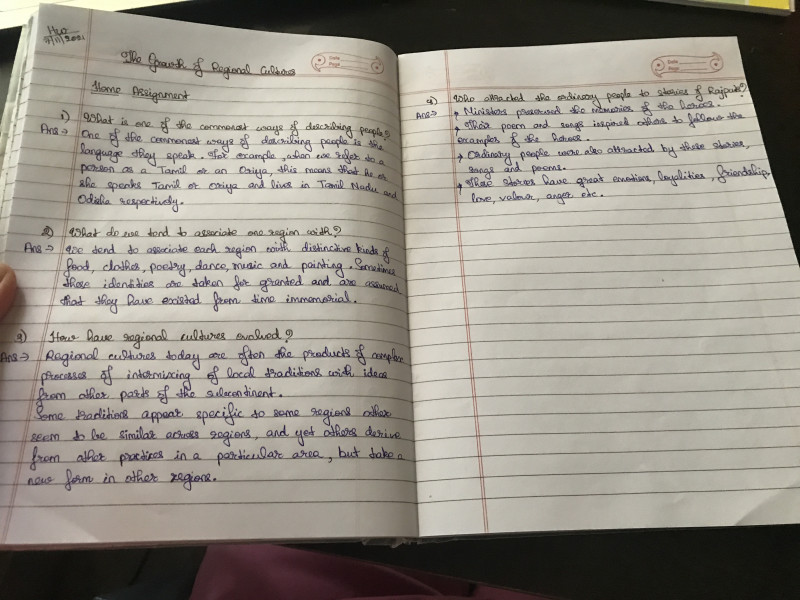 H.W
7/11/2021
The Growth of Regional Cultures
Date
Page
Home Assignment
1) What is one of the commonest ways of describing people?
Ans → One of the commonest ways of describing people is the
language they speak. For example, when we refer to a
person as a Tamil or an Oriya, this means that he or
she speaks Tamil or oriya and lives in Tamil Nadu and
Odisha respectively.
2) What do we tend to associate one region with?
Ans → We tend to associate each region with distinctive kinds of
food, clothes, poetry, dance, music and painting. Sometimes
these identities are taken for granted and are assumed
that they have existed from time immemorial.
3) How have regional cultures evolved?
Ans → Regional cultures today are often the products of complex
processes of intermixing of local traditions with ideas
from other parts of the subcontinent.
Some traditions appear specific to some regions other
seem to be similar across regions, and yet others derive
from other practices in a particular area, but take a
new form in other regions.
Date
Page
4) Who attracted the ordinary people to stories of Rajputs?
Ans → Ministers preserved the memories of the heroes.
Their poem and songs inspired others to follow the
examples of the heroes.
Ordinary people were also attracted by these stories,
songs and poems.
These stories have great emotions, loyalities, friendship,
love, valour, anger etc.